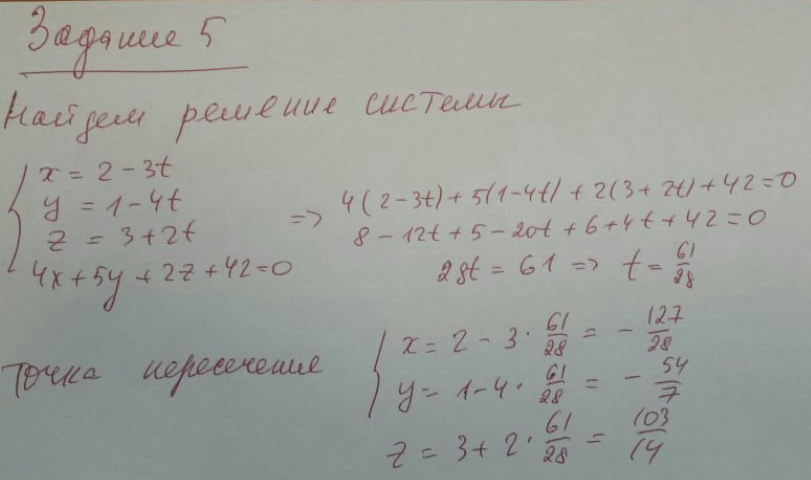 Задание 5
Найдем решение системы
x = 2 - 3t
y = 1 - 4t
z = 3 + 2t
4x + 5y + 2z + 42 = 0
=> 4(2 - 3t) + 5(1 - 4t) + 2(3 + 2t) + 42 = 0
8 - 12t + 5 - 20t + 6 + 4t + 42 = 0
28t = 61 => t = 61/28
точка пересечения
x = 2 - 3 · 61/28 = - 127/28
y = 1 - 4 · 61/28 = - 54/7
z = 3 + 2 · 61/28 = 103/14